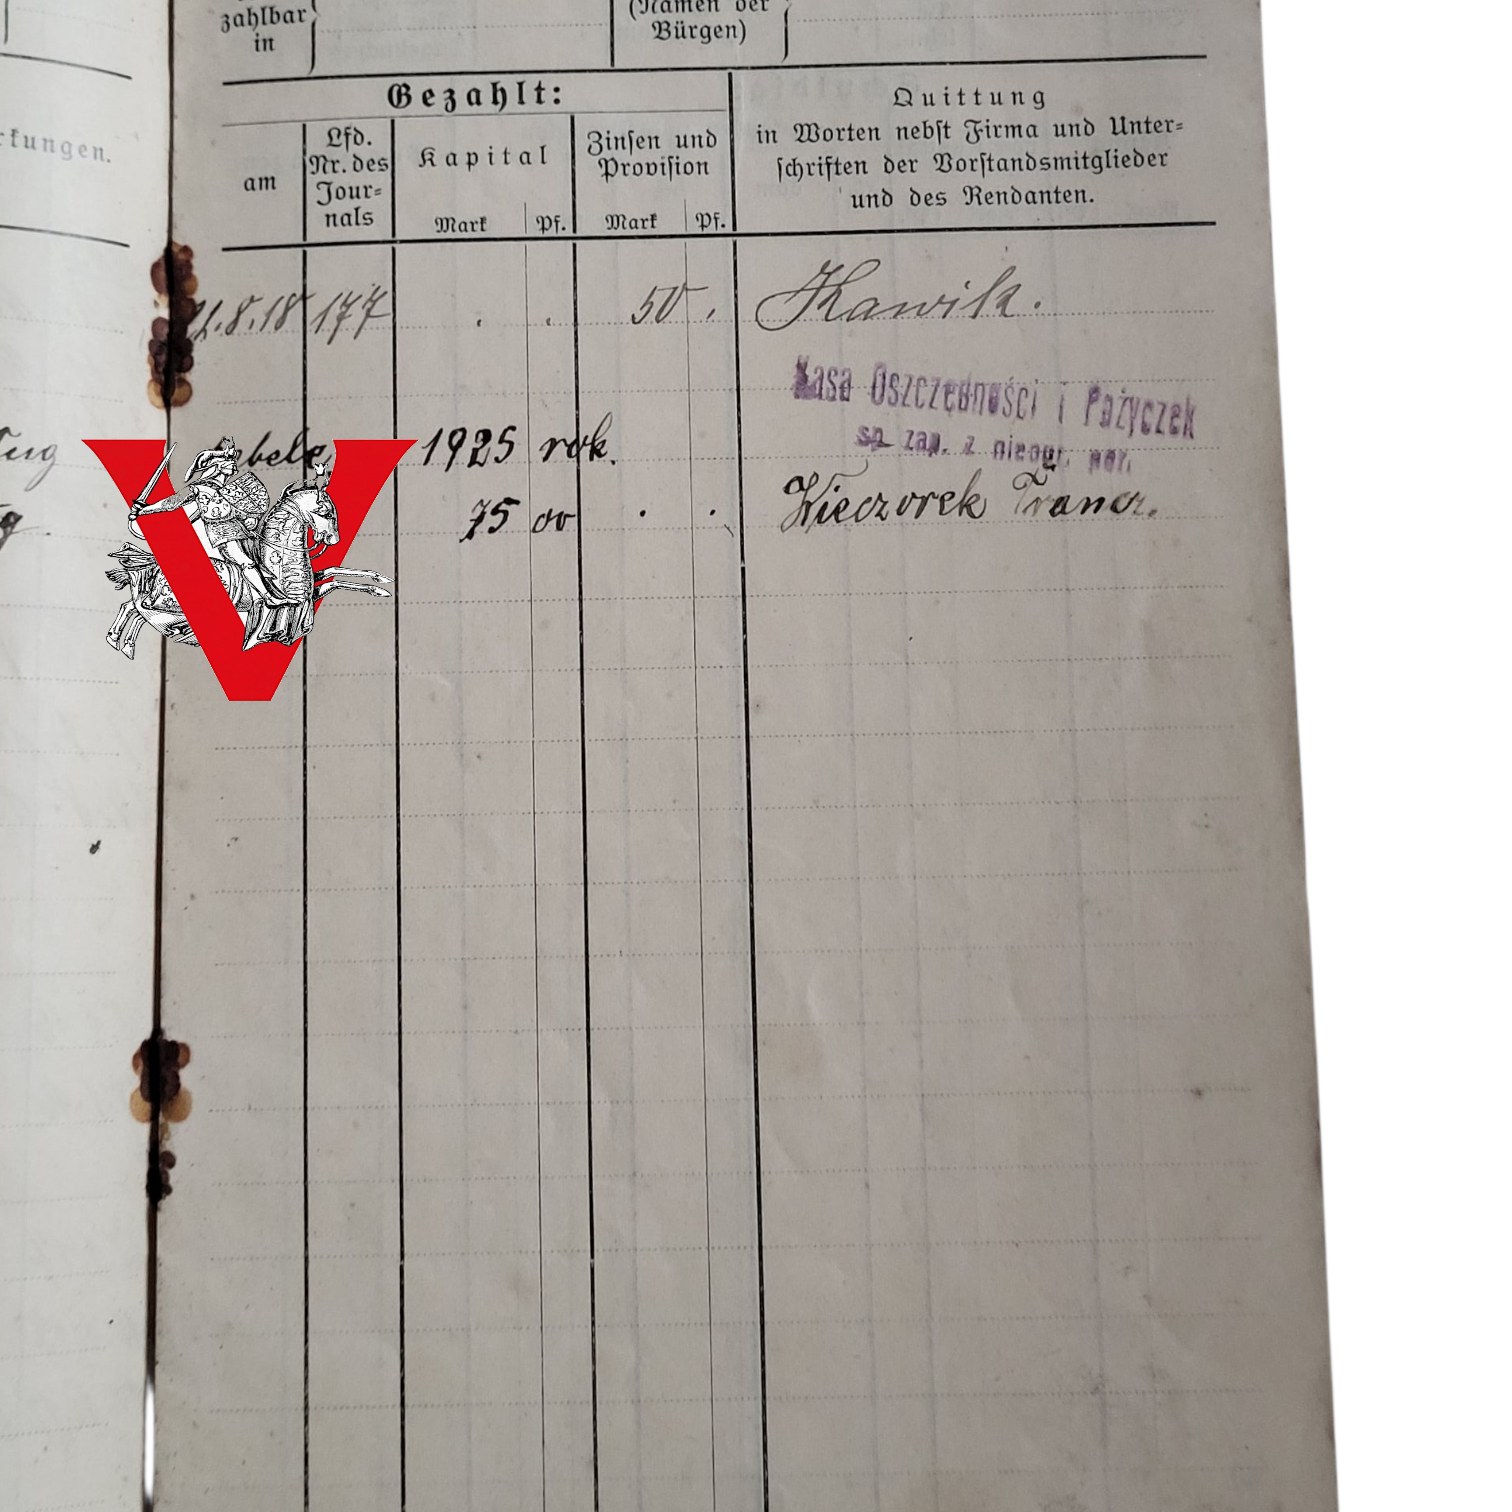 zahlbar
in
(Namen der
Bürgen)
rkungen.
Bezahlt:
am
Lfd.
Nr. des
Jour-
nals
Kapital
Mark Pf.
Zinsen und
Provision
Mark Pf.
Quittung
in Worten nebst Firma und Unter-
schriften der Vorstandsmitglieder
und des Rendanten.
.8.18 177 . . 50 . Kawik.
Kasa Oszczędności i Pożyczek
sp. zap. z nieogr. por.
1925 rok.
75 00 . . Wieczorek Francz.
V